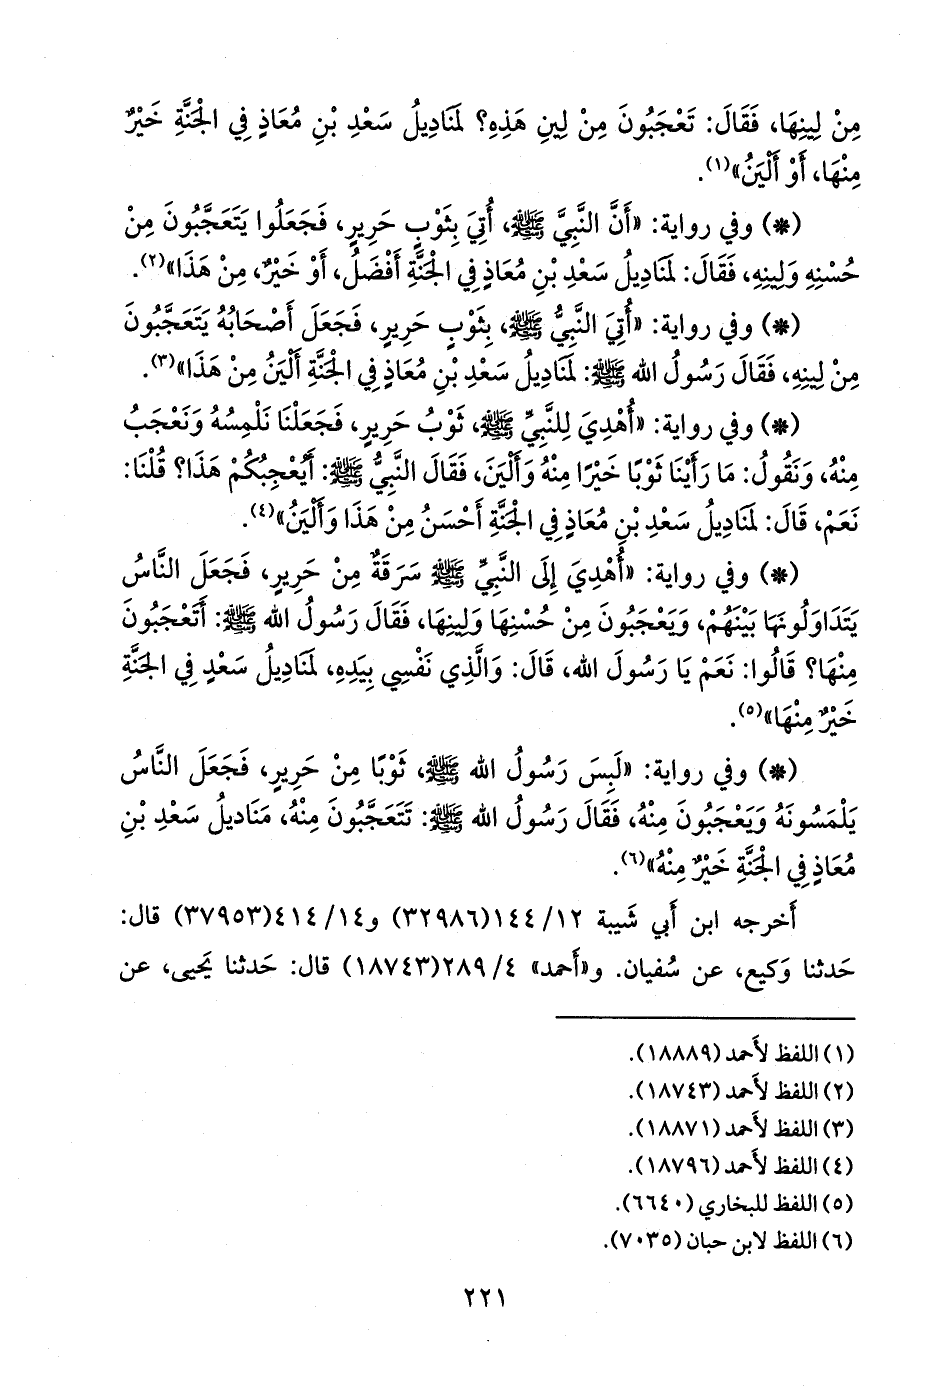 مِنْ لِينِهَا، فَقَالَ: تَعْجَبُونَ مِنْ لِينِ هَذِهِ؟ لَمَنَادِيلُ سَعْدِ بْنِ مُعَاذٍ فِي الْجَنَّةِ خَيْرٌ
مِنْهَا، أَوْ أَلْيَنُ»(١).
(*) وفي رواية: «أَنَّ النَّبِيَّ ﷺ، أُتِيَ بِثَوْبِ حَرِيرٍ، فَجَعَلُوا يَتَعَجَّبُونَ مِنْ
حُسْنِهِ وَلِينِهِ، فَقَالَ: لَمَنَادِيلُ سَعْدِ بْنِ مُعَاذٍ فِي الْجَنَّةِ أَفْضَلُ، أَوْ خَيْرٌ، مِنْ هَذَا»(٢).
(*) وفي رواية: «أُتِيَ النَّبِيُّ ﷺ، بِثَوْبِ حَرِيرٍ، فَجَعَلَ أَصْحَابُهُ يَتَعَجَّبُونَ
مِنْ لِينِهِ، فَقَالَ رَسُولُ الله ﷺ: لَمَنَادِيلُ سَعْدِ بْنِ مُعَاذٍ فِي الْجَنَّةِ أَلْيَنُ مِنْ هَذَا»(٣).
(*) وفي رواية: «أُهْدِيَ لِلنَّبِيِّ ﷺ، ثَوْبُ حَرِيرٍ، فَجَعَلْنَا نَلْمِسُهُ وَنَعْجَبُ
مِنْهُ، وَنَقُولُ: مَا رَأَيْنَا ثَوْبًا خَيْرًا مِنْهُ وَأَلْيَنَ، فَقَالَ النَّبِيُّ ﷺ: أَيُعْجِبُكُمْ هَذَا؟ قُلْنَا:
نَعَمْ، قَالَ: لَمَنَادِيلُ سَعْدِ بْنِ مُعَاذٍ فِي الْجَنَّةِ أَحْسَنُ مِنْ هَذَا وَأَلْيَنُ»(٤).
(*) وفي رواية: «أُهْدِيَ إِلَى النَّبِيِّ ﷺ سَرَقَةٌ مِنْ حَرِيرٍ، فَجَعَلَ النَّاسُ
يَتَدَاوَلُونَهَا بَيْنَهُمْ، وَيَعْجَبُونَ مِنْ حُسْنِهَا وَلِينِهَا، فَقَالَ رَسُولُ الله ﷺ: أَتَعْجَبُونَ
مِنْهَا؟ قَالُوا: نَعَمْ يَا رَسُولَ الله، قَالَ: وَالَّذِي نَفْسِي بِيَدِهِ، لَمَنَادِيلُ سَعْدٍ فِي الْجَنَّةِ
خَيْرٌ مِنْهَا»(٥).
(*) وفي رواية: «لَبِسَ رَسُولُ الله ﷺ، ثَوْبًا مِنْ حَرِيرٍ، فَجَعَلَ النَّاسُ
يَلْمَسُونَهُ وَيَعْجَبُونَ مِنْهُ، فَقَالَ رَسُولُ الله ﷺ: تَتَعَجَّبُونَ مِنْهُ، مَنَادِيلُ سَعْدِ بْنِ
مُعَاذٍ فِي الْجَنَّةِ خَيْرٌ مِنْهُ»(٦).
أَخرجه ابن أَبي شَيبة ١٢/ ١٤٤(٣٢٩٨٦) و١٤/ ٤١٤(٣٧٩٥٣) قال:
حَدثنا وَكيع، عن سُفيان. و«أَحمد» ٤/ ٢٨٩(١٨٧٤٣) قال: حَدثنا يَحيى، عن
(١) اللفظ لأَحمد (١٨٨٨٩).
(٢) اللفظ لأَحمد (١٨٧٤٣).
(٣) اللفظ لأَحمد (١٨٨٧١).
(٤) اللفظ لأَحمد (١٨٧٩٦).
(٥) اللفظ للبخاري (٦٦٤٠).
(٦) اللفظ لابن حبان (٧٠٣٥).
٢٢١